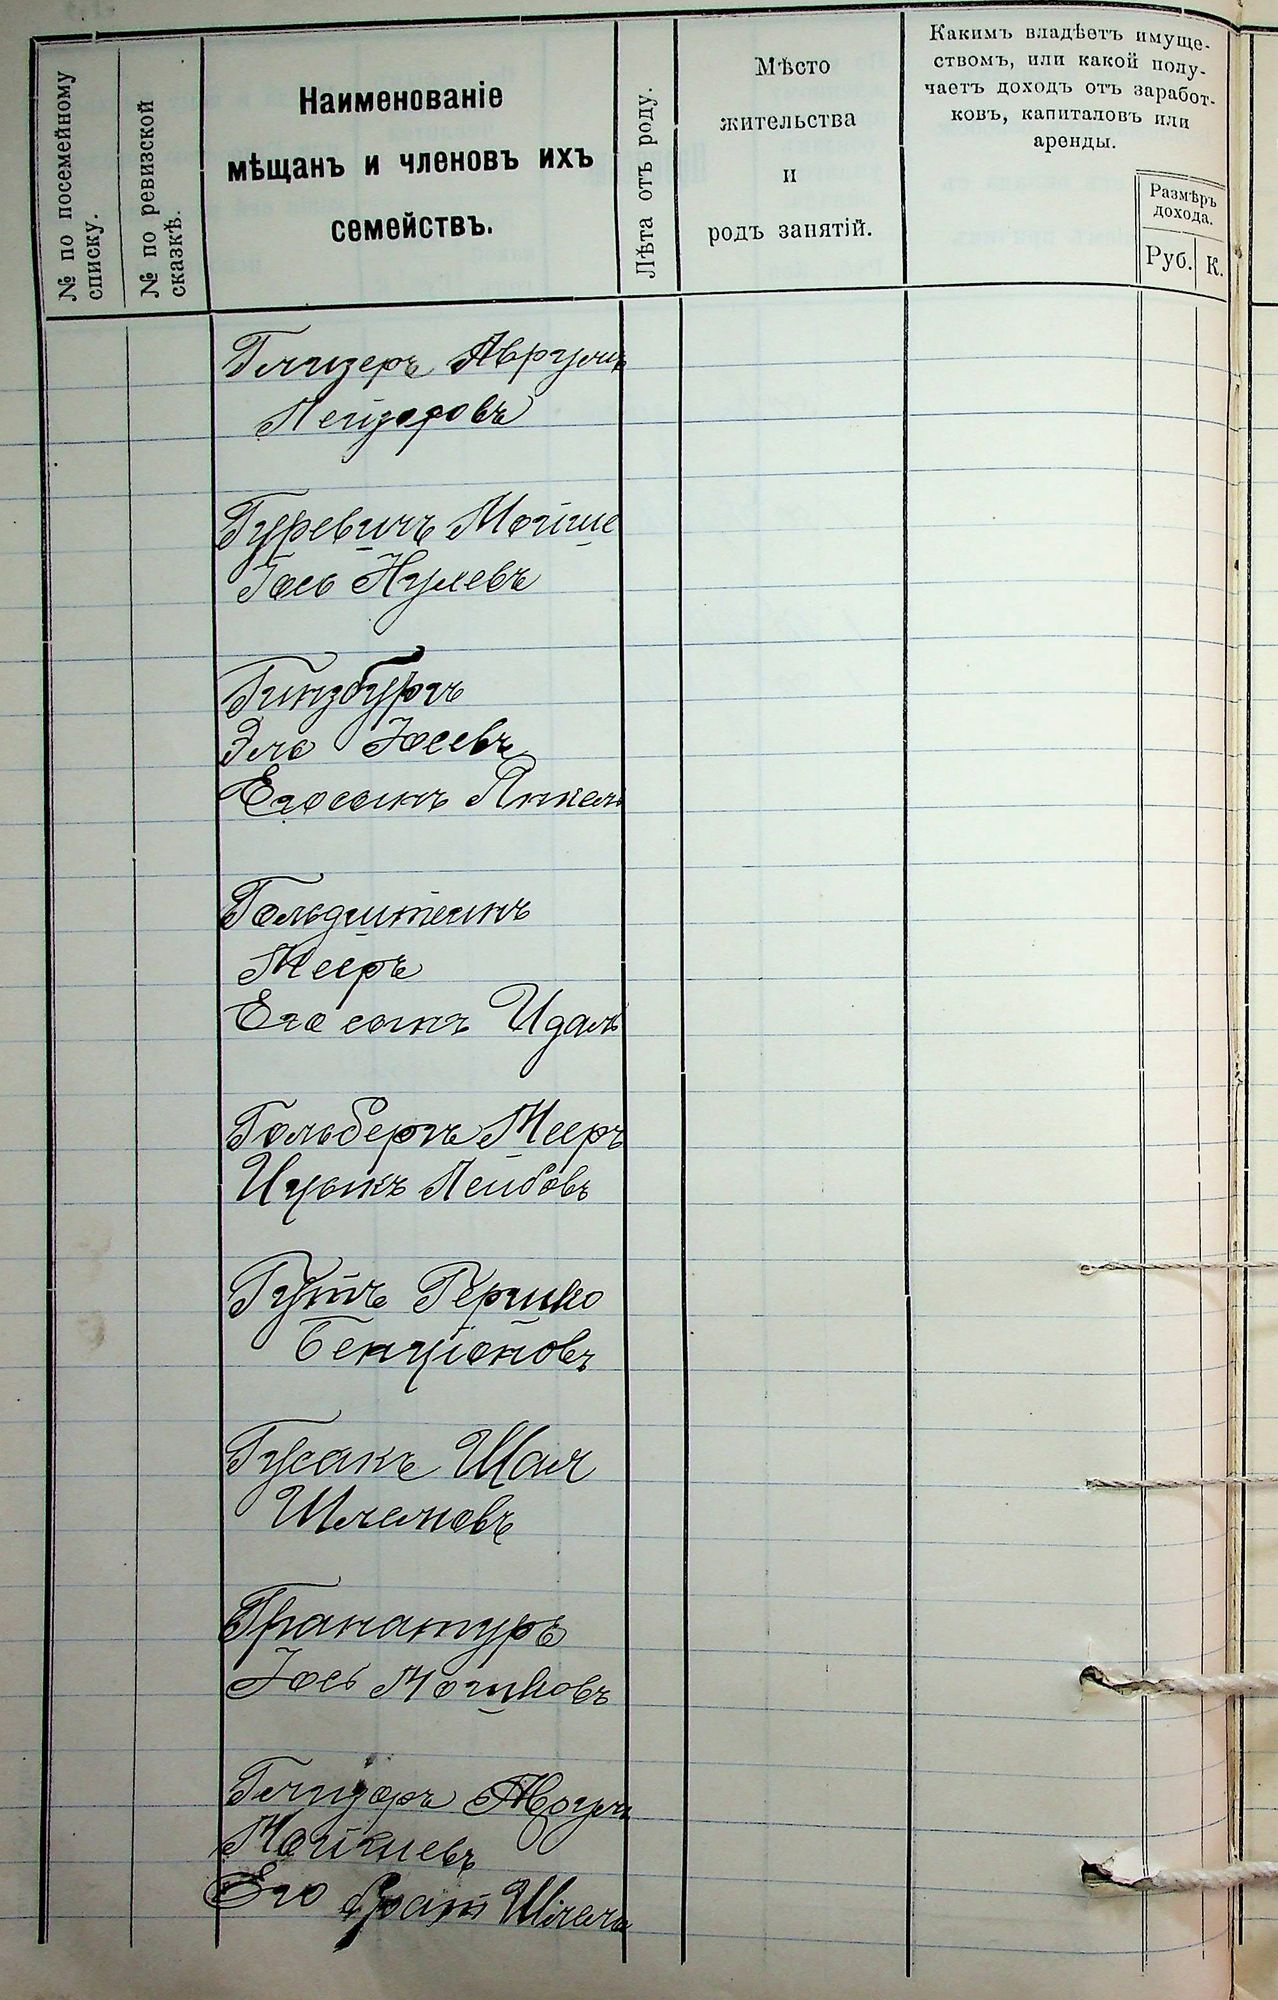 № по посемейному
списку.
№ по ревизской
сказкѣ.
Наименованіе
мѣщанъ и членовъ ихъ
семействъ.
Лѣта отъ роду.
Мѣсто
жительства
и
родъ занятій.
Какимъ владѣетъ имуще-
ствомъ, или какой полу-
чаетъ доходъ отъ заработ-
ковъ, капиталовъ или
аренды.
Размѣръ
дохода.
Руб.
К.
Глизеръ Аврумъ
Лейзеровъ
Гуревичъ Мойше
Іось Нулевъ
Гинзбургъ
Эль Іосевъ
Его сынъ Янкель
Гольдштейнъ
Мееръ
Его сынъ Идаль
Гольбергъ Мееръ
Ицыкъ Лейбовъ
Гутъ Гершко
Бенціоновъ
Гусакъ Шая
Шлемовъ
Гранатуръ
Іось Мошковъ
Мойшевъ
Его братъ